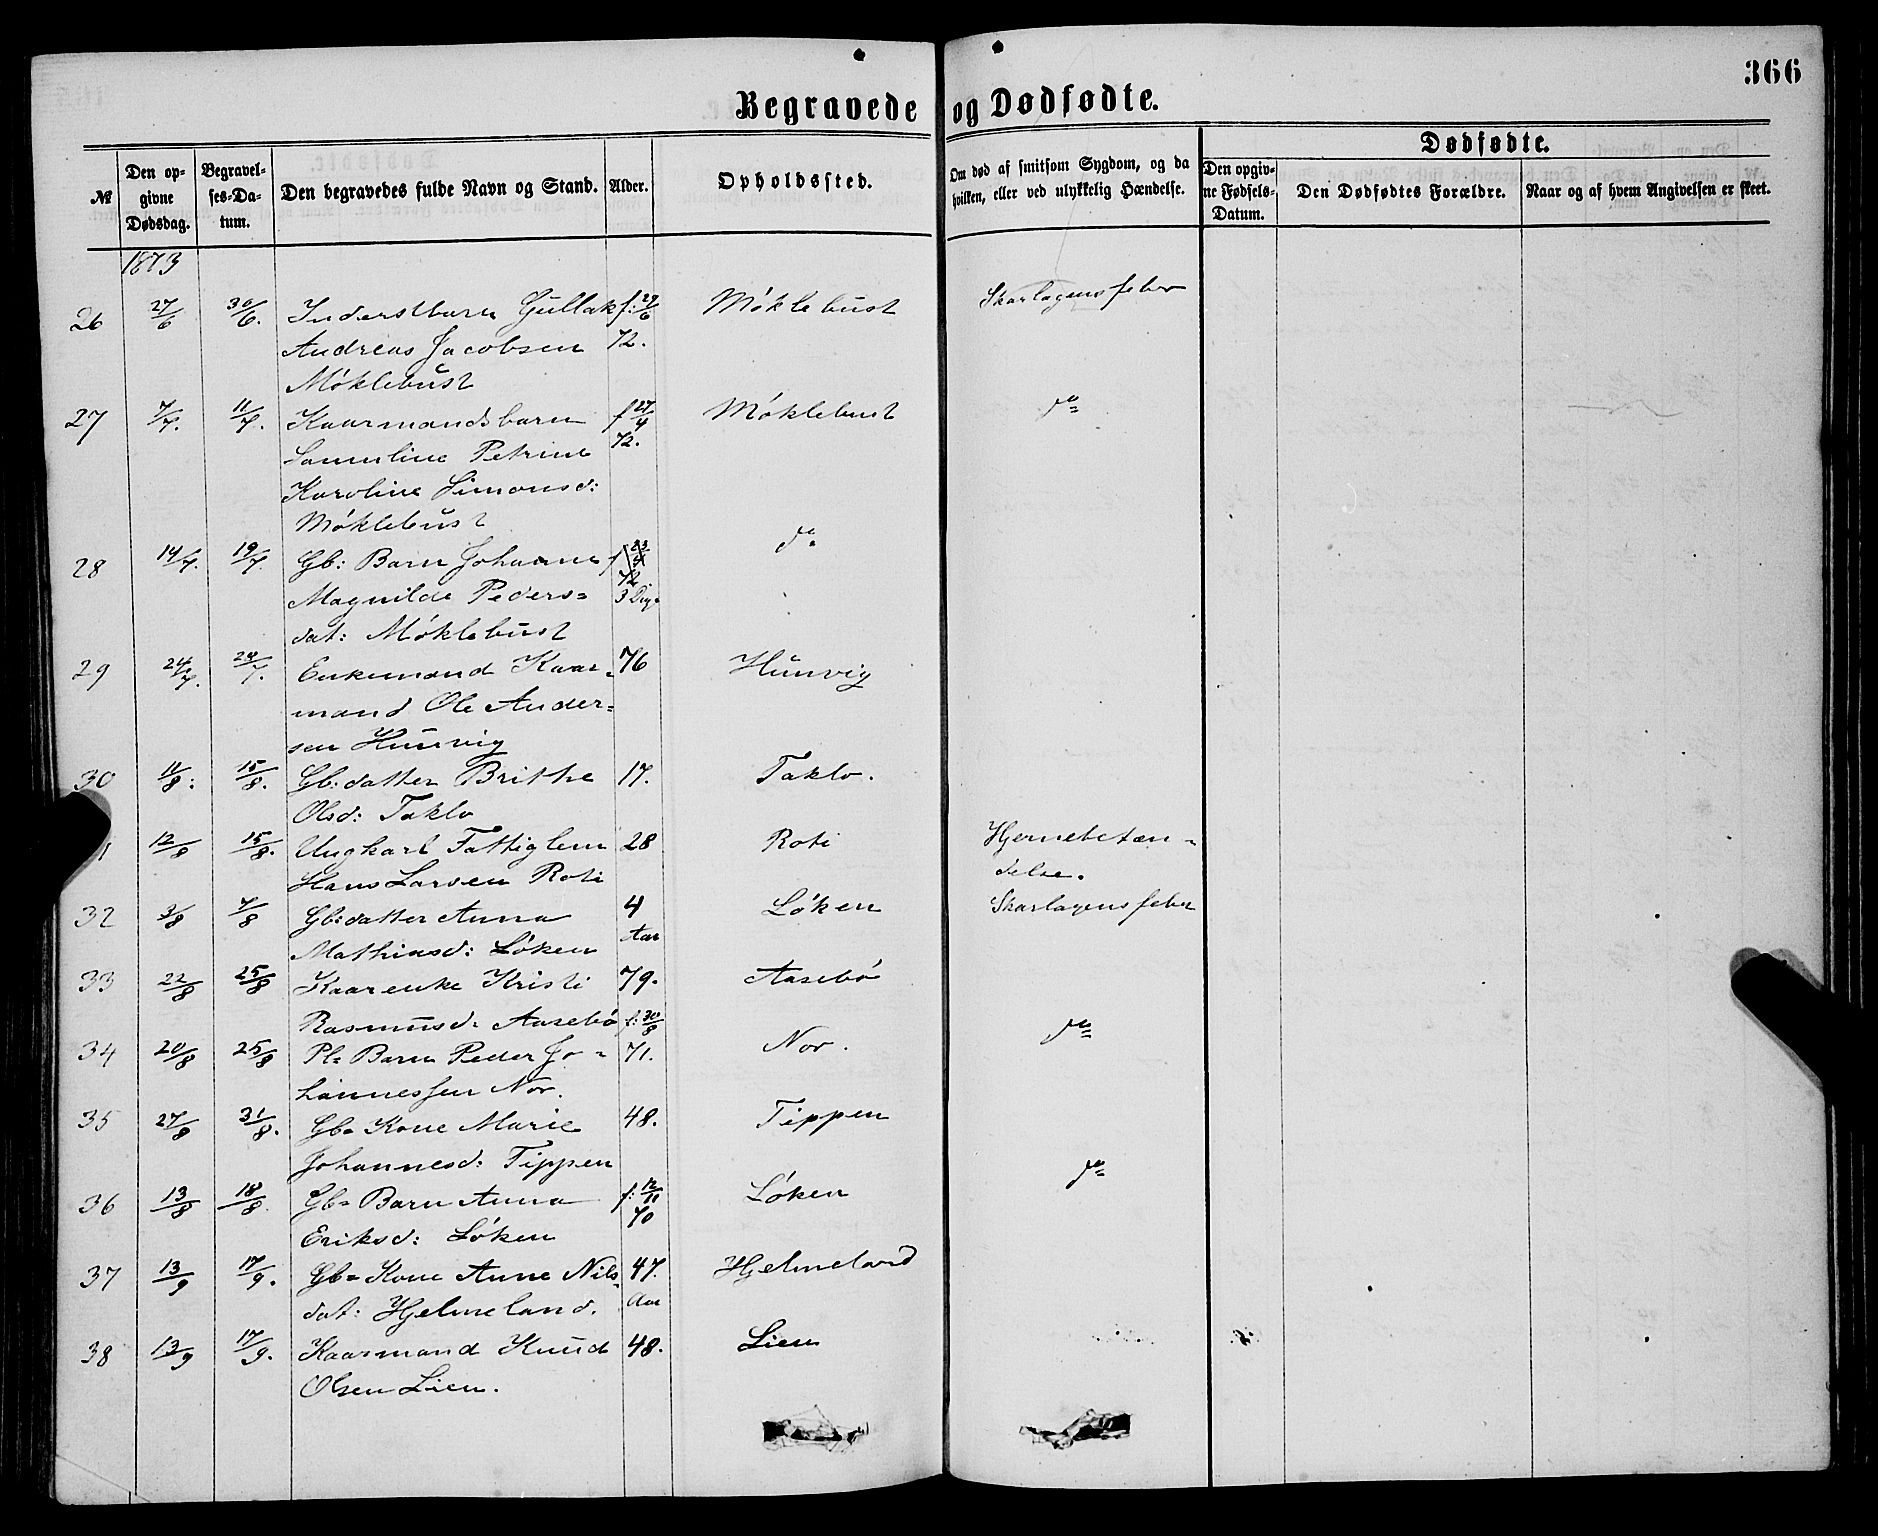 366
Begravede og Dødfødte.
№
Den opgivne Dødsdag.
Begravelses-Datum.
Den begravedes fulde Navn og Stand.
Alder.
Opholdssted.
Om død af smitsom Sygdom, og da hvilken, eller ved ulykkelig Hændelse.
Dødfødte.
Den opgivne Fødsels-Datum.
Den Dødfødtes Forældre.
Naar og af hvem Angivelsen er skeet.
1873
26 27/6 30/6. Inderstbarn Gullak f: 27/6 Møklebust Skarlagensfeber
Andreas Jacobsen 72.
Møklebust
27 7/7. 11/7. Kaarmandsbarn f 27/4 Møklebust do
Samuline Petrine 72.
Karoline Simonsd:
Møklebust
28 14/7. 19/7. Gb: Barn Johanne f 72 do
Magnilde Peders= 3 Dage
dat: Møklebust
29 24/7. 28/7. Enkemand Kaar= 76 Hunvig
mand Ole Ander=
sen Hunvig
30 11/8: 15/8. Gb:datter Brithe 17. Taklo.
Olsd: Taklo
1 12/8 15/8. Ungkarl Fattiglem 28 Roti Hjernebetæn=
Hans Larsen Roti delse.
32 3/8 7/8 Gb:datter Anna 4 Løken Skarlagensfeber
Mathiasd: Løken Aar
33 22/8 25/8 Kaarenke Kristi 79. Aasebø
Rasmusd: Aasebø
34 20/8 25/8 Pl= Barn Peder Jo= f: 30/8 71. Nor. do
hannessen Nor.
35 27/8 31/8. Gb= Kone Marie 48. Tippen
Johannesd: Tippen
36 13/8 18/8. Gb= Barn Anna f: 12/11 Løken do
Eriksd: Løken 70
37 13/9 17/9. Gb= Kone Anne Nils= 47. Hjelmeland
dat: Hjelmeland. Aar
38 13/9 17/9. Kaarmand Knud 48. Lien
Olsen Lien.